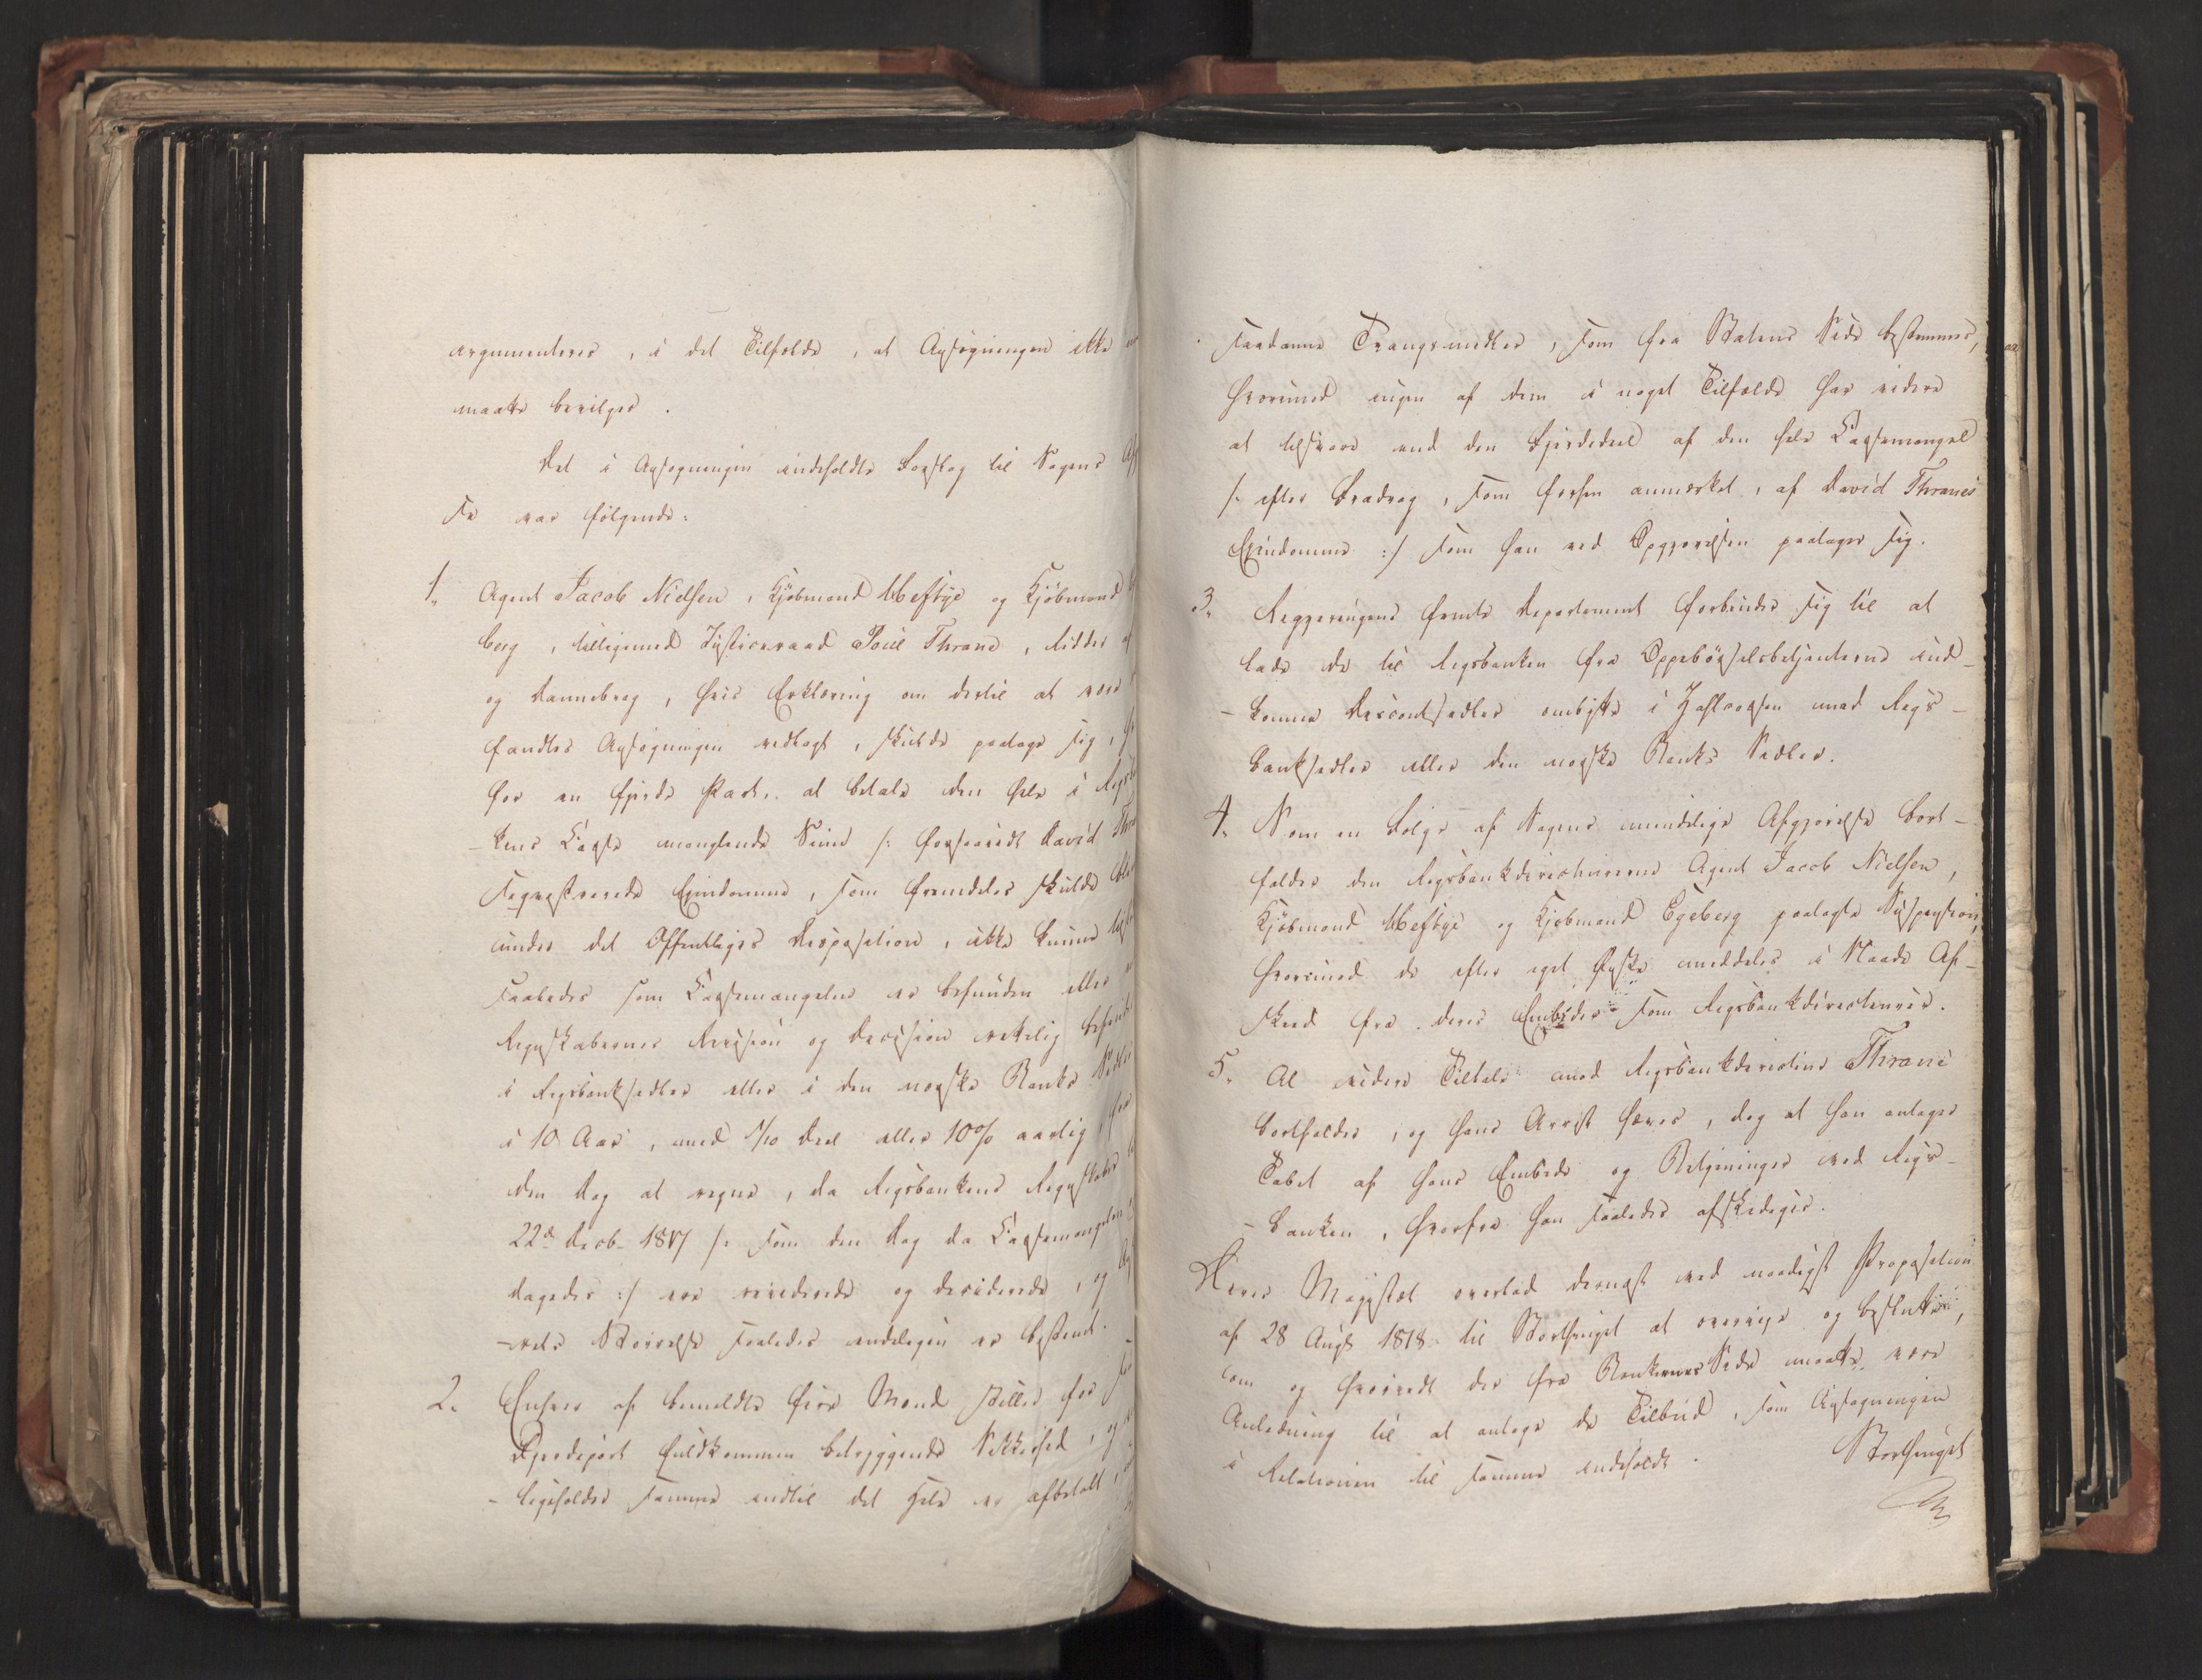 argumenteres, i det Tilfælde, at Ansøgningen ikke
maatte bevilges.
Det i Ansøgningen indeholdte Forslag til Sagens
var følgende:
1. Agent Jacob Nielsen, Kjøbmand Heftye og Kjøbmand
berg, tilligemed Justiceraad Poul Thrane, Ridder af
og Dannebrog, hvis Erklæring om dertil at være
fandtes Ansøgningen vedlagt, skulde paatage sig,
for en fjerde Part, at betale den hele i Rigsb
-kens Casse manglende Sum /: forsaavidt David Thra
seqvestrerede Eiendomme, som fremdeles skulde
under det Offentliges Disposition, ikke kunne
saaledes som Cassemangelen er befunden eller
Regnskabernes Revision og Decision rettelig befind
i Rigsbanksedler eller i den norske Banks Sedler
i 10 Aar, med 1/10 Deel eller 10% aarlig, fra
den Dag at regne, da Rigsbankens Regnskaber
22de Decb. 1817 /: som den Dag da Cassemangelen
dagedes :/ ere reviderede og deciderede, og
-vels Størrelse saaledes endeligen er bestemt.
2. Enhver af bemeldte fire Mænd stiller for
Fjerdepart fuldkommen betryggende Sikkerhed, og
-ligeholder samme indtil det Hele er afbetalt,
saadanne Tvangsmidler, som fra Statens Side bestemmes,
hvorimod ingen af dem i noget Tilfælde har videre
at tilsvare end den Fjerdedeel af den hele Cassemangel
/: efter Fradrag, som forhen anmærket, af David Thranes
Eiendomme :/ som han ved Opgjørelsen paatager sig.
3. Regjeringens femte Departement forbinder sig til at
lade de til Rigsbanken fra Oppebørselsbetjenterne ind-
-komne Discontsedler ombytte i Zahlcassen med Rigs-
banksedler eller den norske Banks Sedler.
4. Som en Følge af Sagens mindelige Afgjørelse bort-
falder den Rigsbankdirecteurerne Agent Jacob Nielsen,
Kjøbmand Heftye og Kjøbmand Egeberg paalagte Suspension,
hvorimod de efter eget Ønske meddeles i Naade Af-
skeed fra deres Embeder som Rigsbankdirecteurer.
5. Al videre Tiltale mod Rigsbankdirecteur Thrane
bortfalder, og hans Arrest hæves, dog at han antages
Tabet af hans Embede og Betjeninger ved Rigs-
-banken, hvorfra han saaledes afskediges.
Deres Majestæt overlod dernæst ved naadigst Proposition
af 28 Augt 1818 til Storthinget at overveie og beslutte,
om og hvorvidt der fra Bankernes Side maatte være
Anledning til at antage de Tilbud, som Ansøgningen
i Relationen til samme indeholdt.
Storthinget